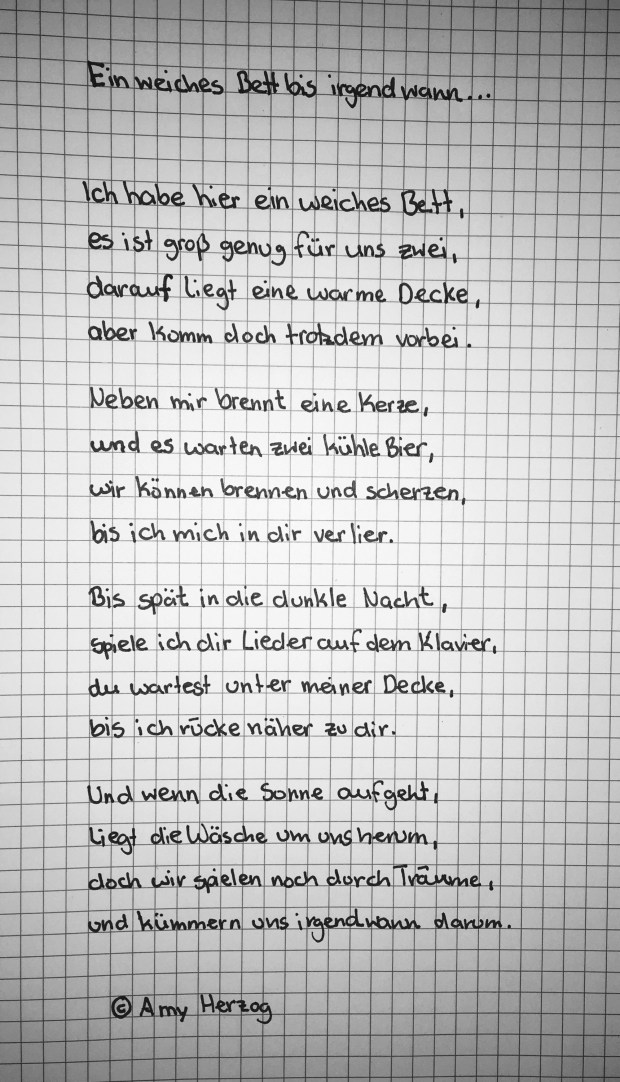 Ein weiches Bett bis irgendwann...
Ich habe hier ein weiches Bett,
es ist groß genug für uns zwei,
darauf liegt eine warme Decke,
aber komm doch trotzdem vorbei.
Neben mir brennt eine Kerze,
und es warten zwei kühle Bier,
wir können brennen und scherzen,
bis ich mich in dir verlier.
Bis spät in die dunkle Nacht,
spiele ich dir Lieder auf dem Klavier,
du wartest unter meiner Decke,
bis ich rücke näher zu dir.
Und wenn die Sonne aufgeht,
liegt die Wäsche um uns herum,
doch wir spielen noch durch Träume,
und kümmern uns irgendwann darum.
© Amy Herzog